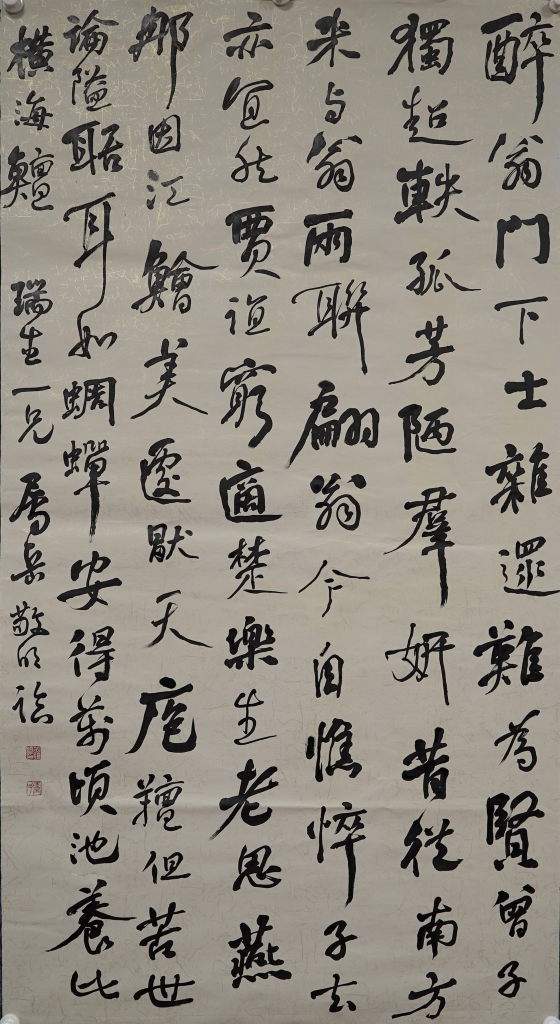 醉翁門下士雜遝難為賢曾子
獨超軼孤芳陋羣妍昔從南方
来与翁兩聯翩翁今自憔悴子去
亦宜然賈誼窮適楚樂生老思燕
那因江鱠美遽猒天庖羶但苦世
論隘聒耳如蜩蟬安得萬頃池養此
橫海鱣 瑞生一兄屬